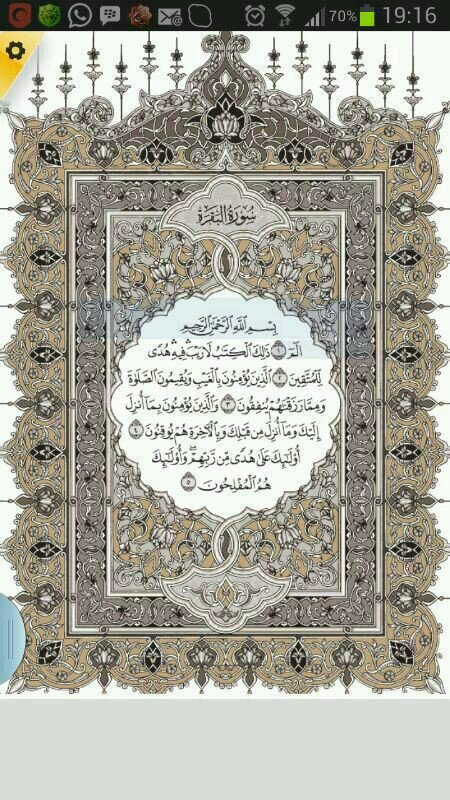 70% 19:16
سُورَةُ البَقَرَةِ
بِسْمِ اللَّهِ الرَّحْمَٰنِ الرَّحِيمِ
الٓمٓ ١ ذَٰلِكَ الْكِتَٰبُ لَا رَيْبَ ۛ فِيهِ ۛ هُدًى
لِّلْمُتَّقِينَ ٢ الَّذِينَ يُؤْمِنُونَ بِالْغَيْبِ وَيُقِيمُونَ الصَّلَوٰةَ
وَمِمَّا رَزَقْنَٰهُمْ يُنفِقُونَ ٣ وَالَّذِينَ يُؤْمِنُونَ بِمَا أُنزِلَ
إِلَيْكَ وَمَا أُنزِلَ مِن قَبْلِكَ وَبِالْآخِرَةِ هُمْ يُوقِنُونَ ٤
أُولَٰئِكَ عَلَىٰ هُدًى مِّن رَّبِّهِمْ ۖ وَأُولَٰئِكَ
هُمُ الْمُفْلِحُونَ ٥